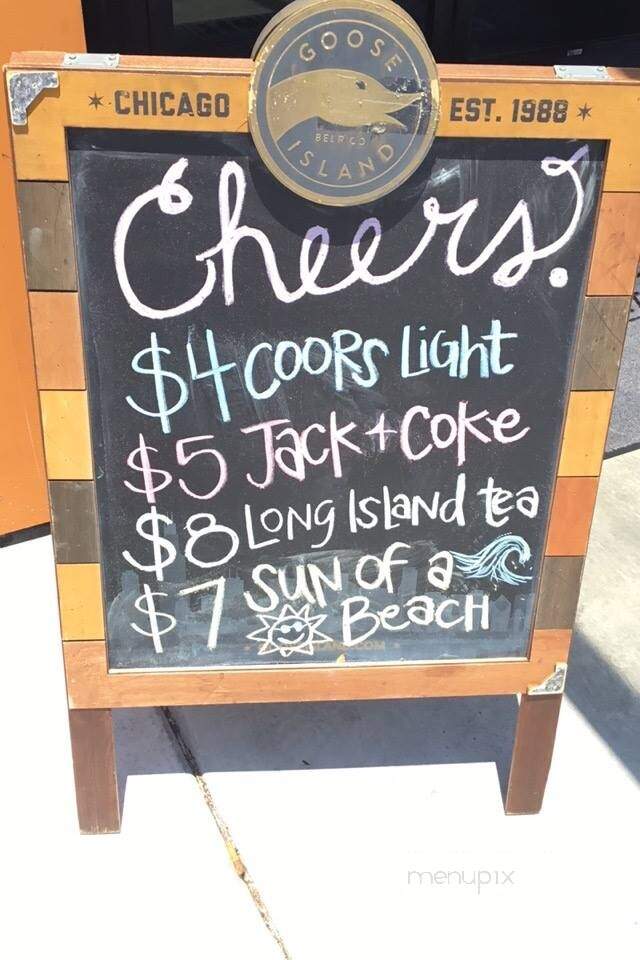 GOOSE
CHICAGO
EST. 1988
ISLAND
Cheers!
$4 COORS Light
$5 Jack + Coke
$8 LONg IsLaNd tea
$7 SUN OF a
BeacH
menupix